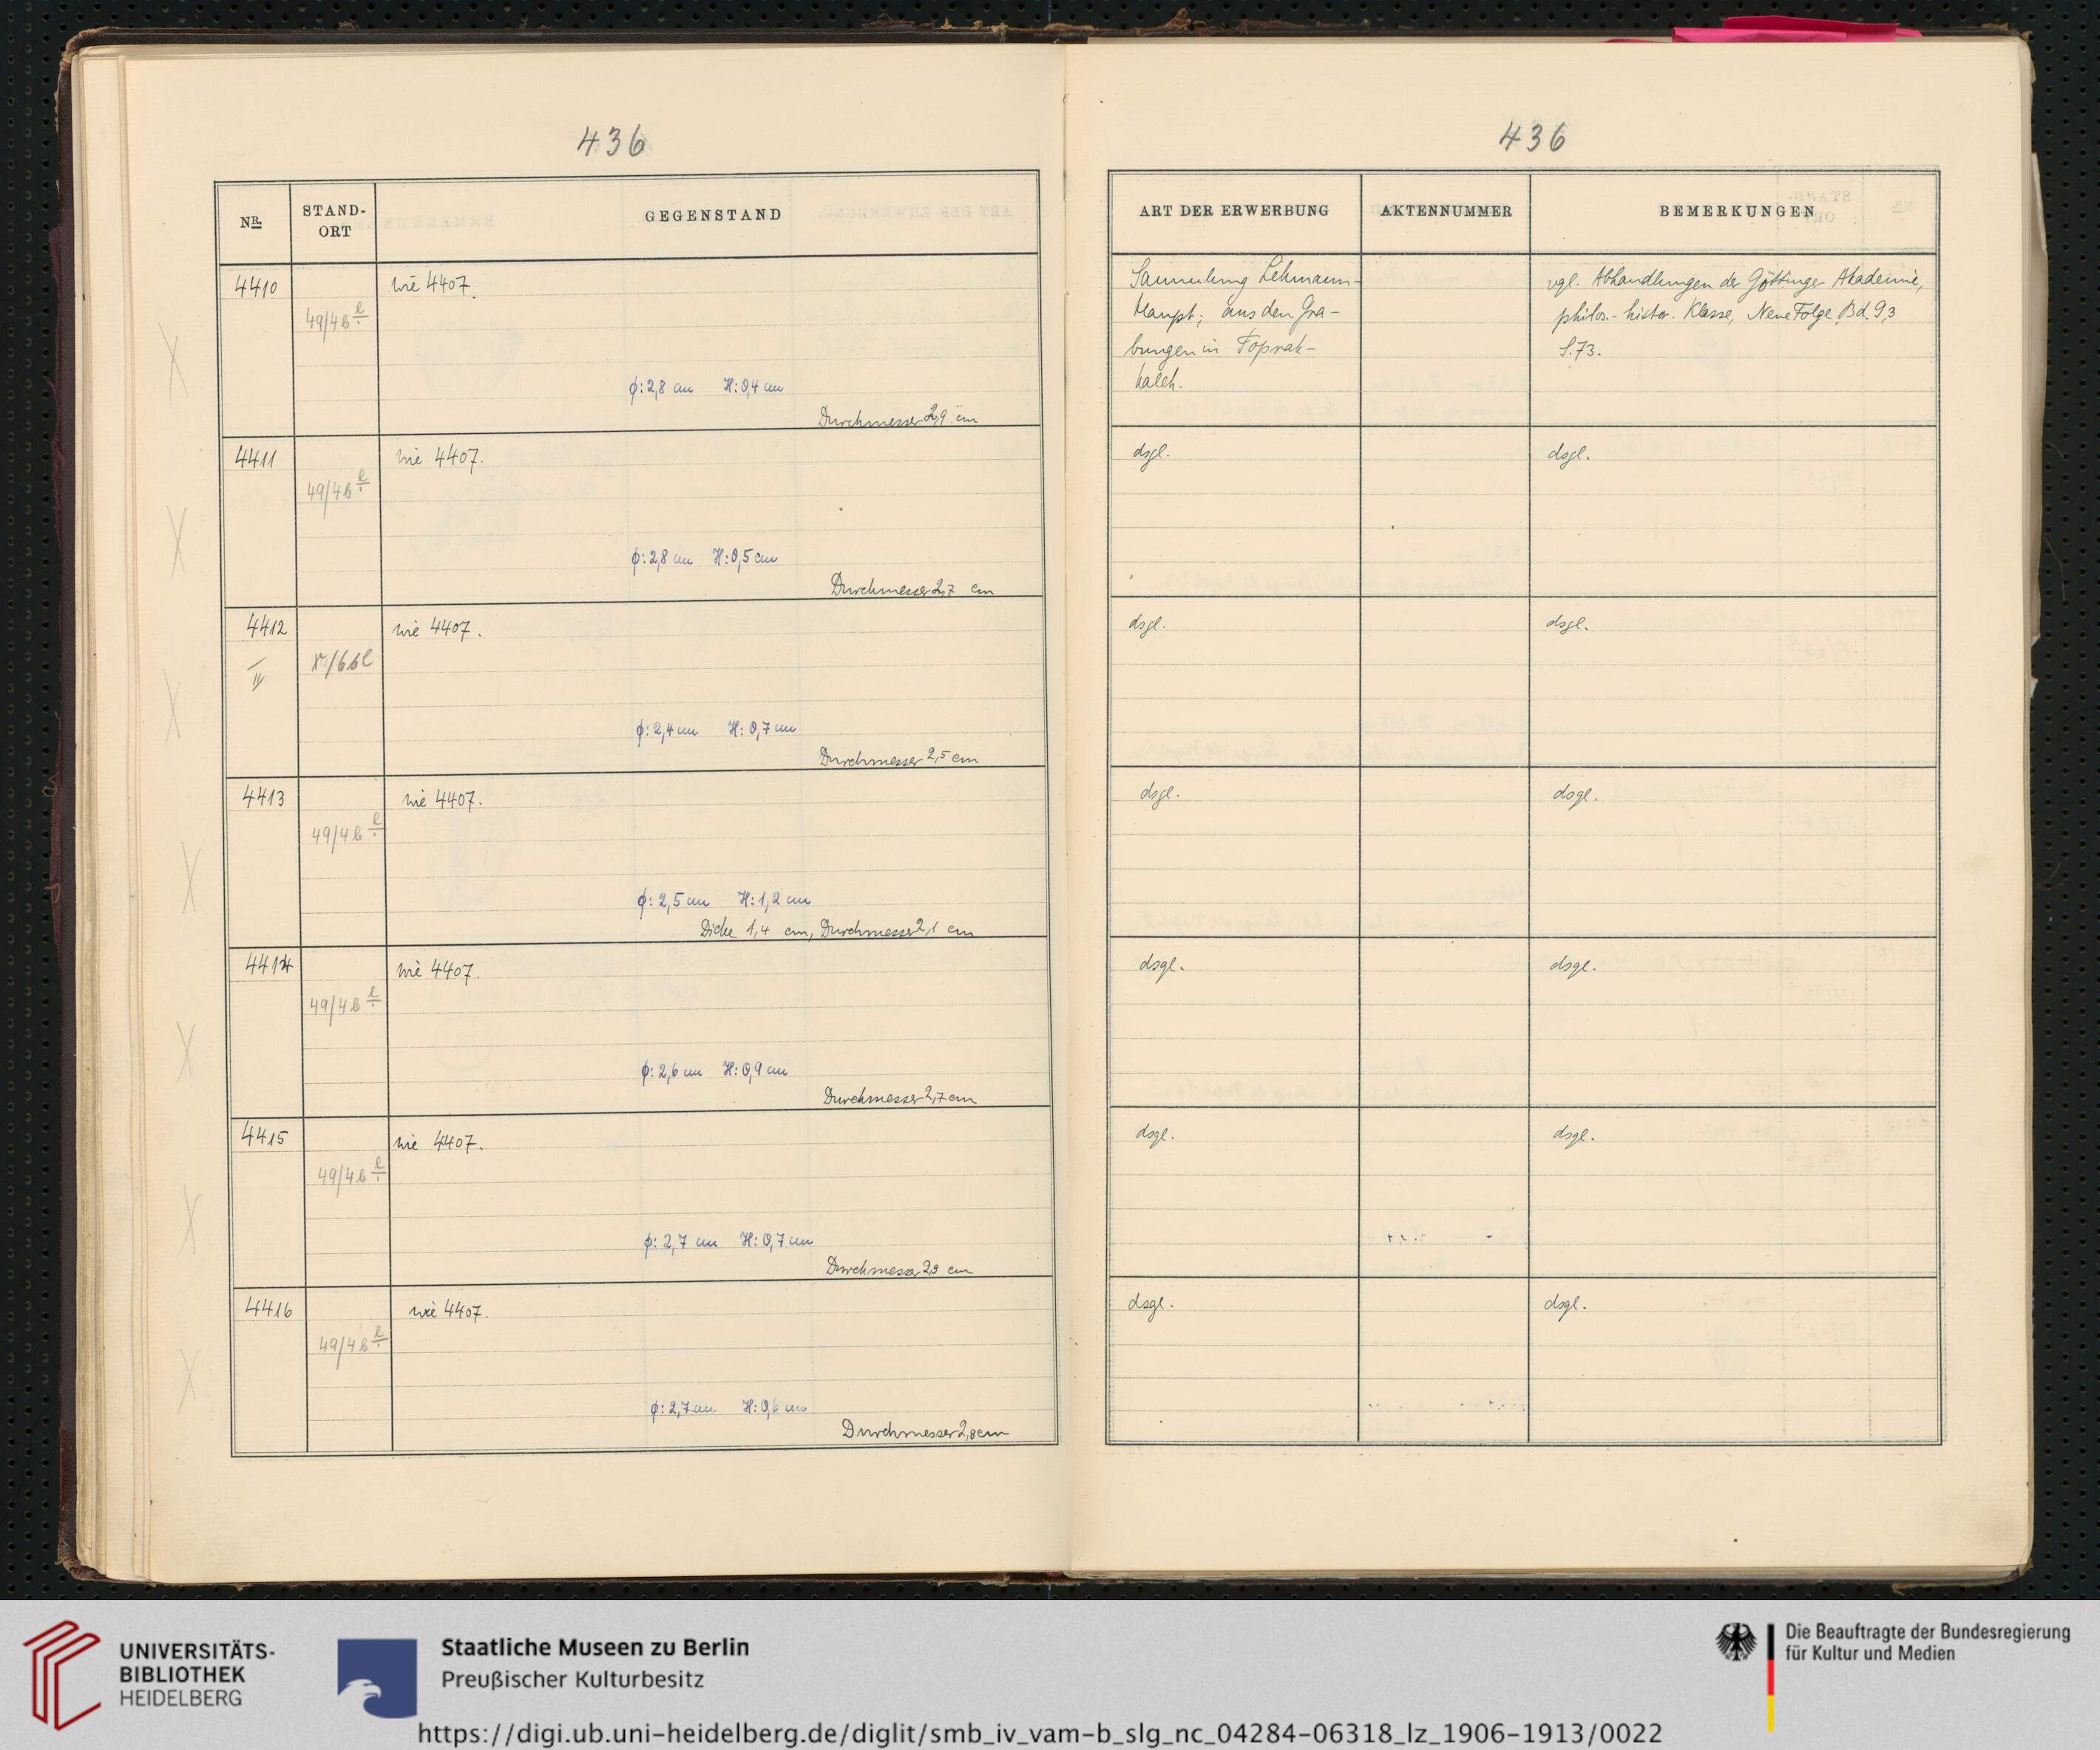 436
NR.
STAND-
ORT
GEGENSTAND
4410
wie 4407.
49/4b
φ: 2,8 cm H: 0,4 cm
Durchmesser 2,9 cm
4411
wie 4407.
49/4b
φ: 2,8 cm H: 0,5 cm
Durchmesser 2,7 cm
4412
wie 4407.
φ: 2,4 cm H: 0,7 cm
Durchmesser 2,5 cm
4413
wie 4407.
49/4b
φ: 2,5 cm H: 1,2 cm
Dicke 1,4 cm, Durchmesser 2,1 cm
4414
wie 4407.
49/4b
φ: 2,6 cm H: 0,9 cm
Durchmesser 2,7 cm
4415
wie 4407.
49/4b
φ: 2,7 cm H: 0,7 cm
Durchmesser cm
4416
wie 4407.
49/4b
φ: 2,7 cm H: 0,6 cm
Durchmesser 2,8 cm
436
ART DER ERWERBUNG
AKTENNUMMER
BEMERKUNGEN
Sammlung Lehmann-
Haupt; aus den Gra-
bungen in Toprak-
kaleh.
vgl. Abhandlungen der Göttinger Akademie,
philos.-histor. Klasse, Neue Folge, Bd. 9,3
S. 73.
dsgl.
dsgl.
dsgl.
dsgl.
dsgl.
dsgl.
dsgl.
dsgl.
dsgl.
dsgl.
dsgl.
dsgl.
UNIVERSITÄTS-
BIBLIOTHEK
HEIDELBERG
Staatliche Museen zu Berlin
Preußischer Kulturbesitz
https://digi.ub.uni-heidelberg.de/diglit/smb_iv_vam-b_slg_nc_04284-06318_lz_1906-1913/0022
Die Beauftragte der Bundesregierung
für Kultur und Medien